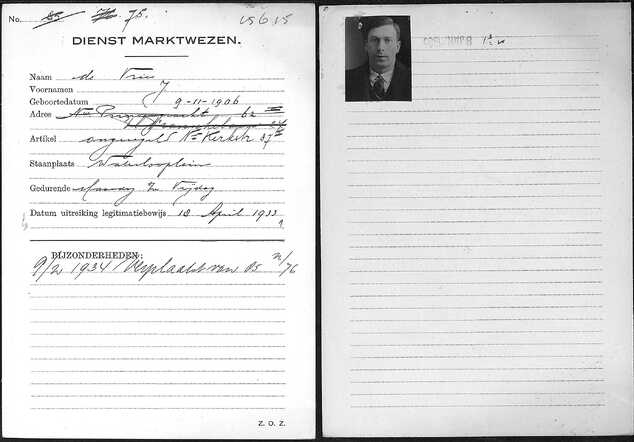 No. 85 75. 15615
DIENST MARKTWEZEN.
Naam de Vries
Voornamen J
Geboortedatum 9-11-1906
Adres Nw Prinsengracht 62 III
Artikel ongeregeld Nw Kerkstr 37
Staanplaats Waterlooplein
Gedurende Maandag t/m Vrijdag
Datum uitreiking legitimatiebewijs 18 April 1933
BIJZONDERHEDEN:
9/2 1934 Verplaatst van 85 n/ 76
Z. O. Z.